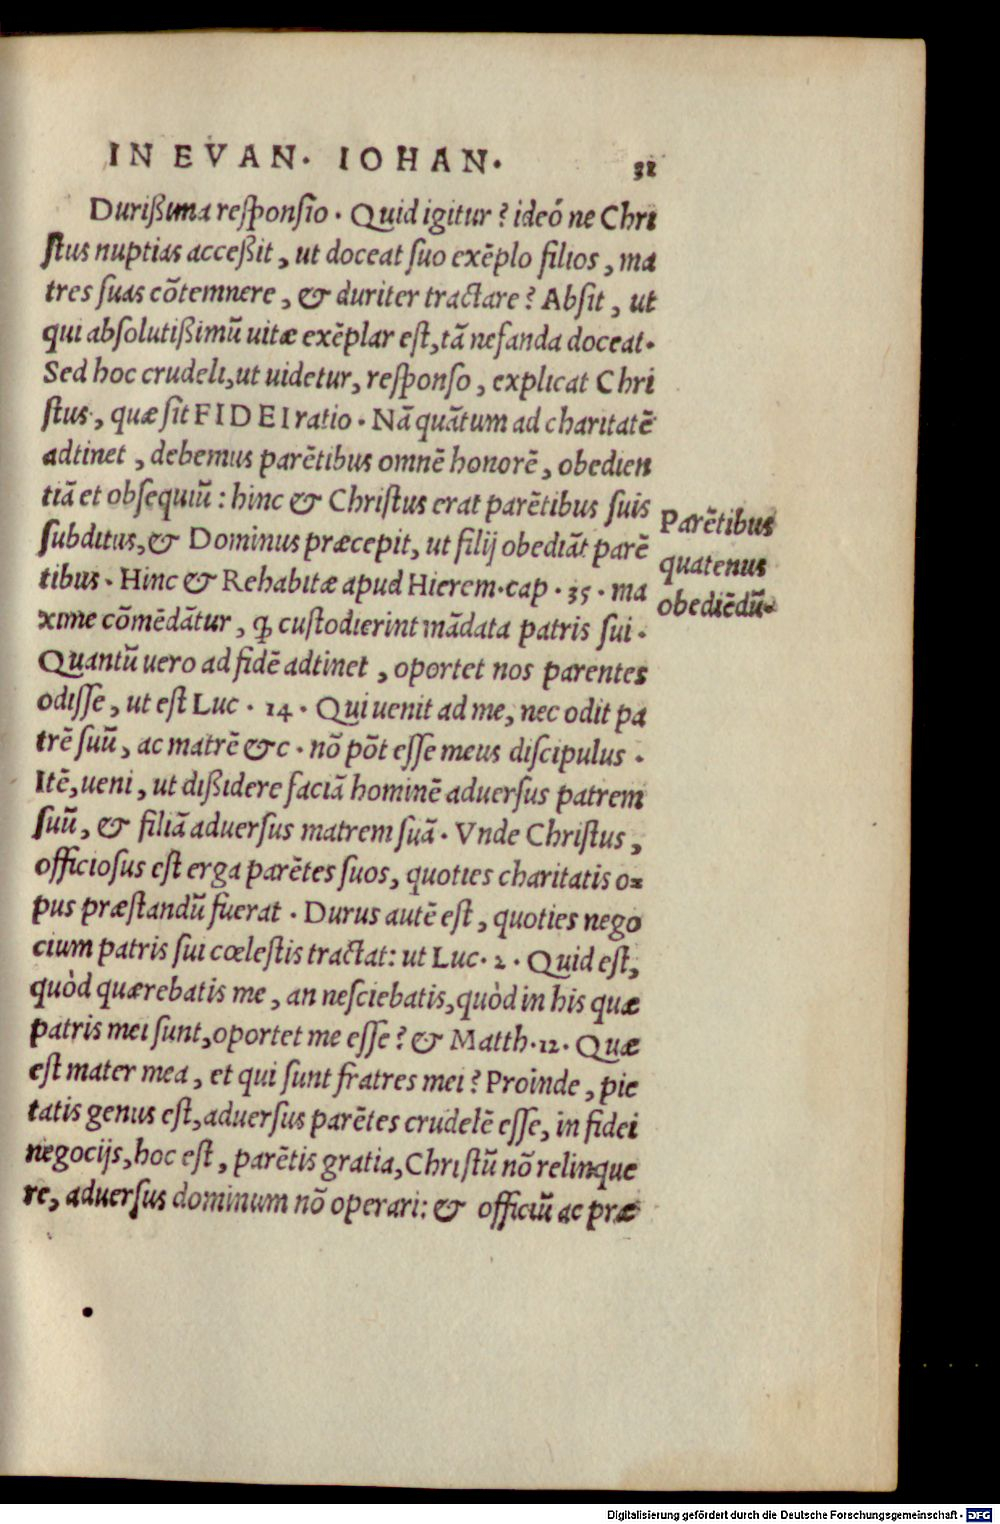 IN EVAN. IOHAN.
31
Durißima responsio. Quid igitur? ideó ne Chri
stus nuptias acceßit, ut doceat suo exẽplo filios, ma
tres suas cõtemnere, & duriter tractare? Absit, ut
qui absolutißimũ uitæ exẽplar est, tã nefanda doceat.
Sed hoc crudeli, ut uidetur, responso, explicat Chri
stus, quæ sit FIDEI ratio. Nã quãtum ad charitatẽ
adtinet, debemus parẽtibus omnẽ honorẽ, obedien
tiã et obsequiũ: hinc & Christus erat parẽtibus suis
subditus, & Dominus præcepit, ut filij obediãt parẽ
tibus. Hinc & Rehabitæ apud Hierem. cap. 35. ma
xime cõmẽdãtur, ꝙ custodierint mãdata patris sui.
Quantũ uero ad fidẽ adtinet, oportet nos parentes
odisse, ut est Luc. 14. Qui uenit ad me, nec odit pa
trẽ suũ, ac matrẽ &c. nõ põt esse meus discipulus.
Itẽ, ueni, ut dißidere faciã hominẽ aduersus patrem
suũ, & filiã aduersus matrem suã. Vnde Christus,
officiosus est erga parẽtes suos, quoties charitatis o=
pus præstandũ fuerat. Durus autẽ est, quoties nego
cium patris sui cœlestis tractat: ut Luc. 2. Quid est,
quòd quærebatis me, an nesciebatis, quòd in his quæ
patris mei sunt, oportet me esse? & Matth. 12. Quæ
est mater mea, et qui sunt fratres mei? Proinde, pie
tatis genus est, aduersus parẽtes crudelẽ esse, in fidei
negocijs, hoc est, parẽtis gratia, Christũ nõ relinque
re, aduersus dominum nõ operari: & officiũ ac præ
Parẽtibus
quatenus
obediẽdũ.
Digitalisierung gefördert durch die Deutsche Forschungsgemeinschaft - DFG